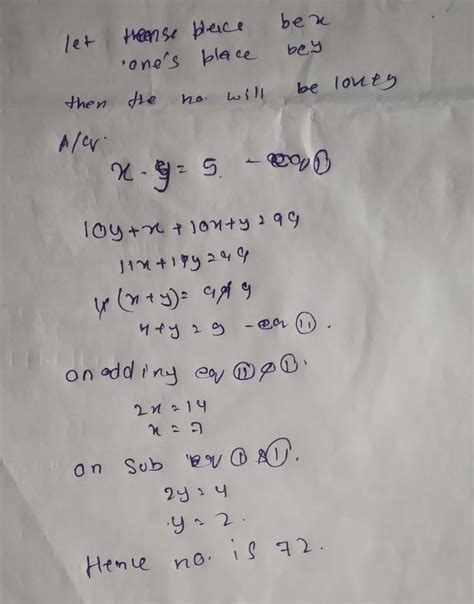 let tense place be x
one's place be y
then the no. will be 10x+y
A/q.
x - y = 5. - eq ①
10y+x + 10x+y = 99
11x+11y = 99
11(x+y) = 99
x+y = 9 - eq ⑪.
on adding eq ⑪ & ①.
2x = 14
x = 7
on sub eq ① & ⑪.
2y = 4
y = 2.
Hence no. is 72.